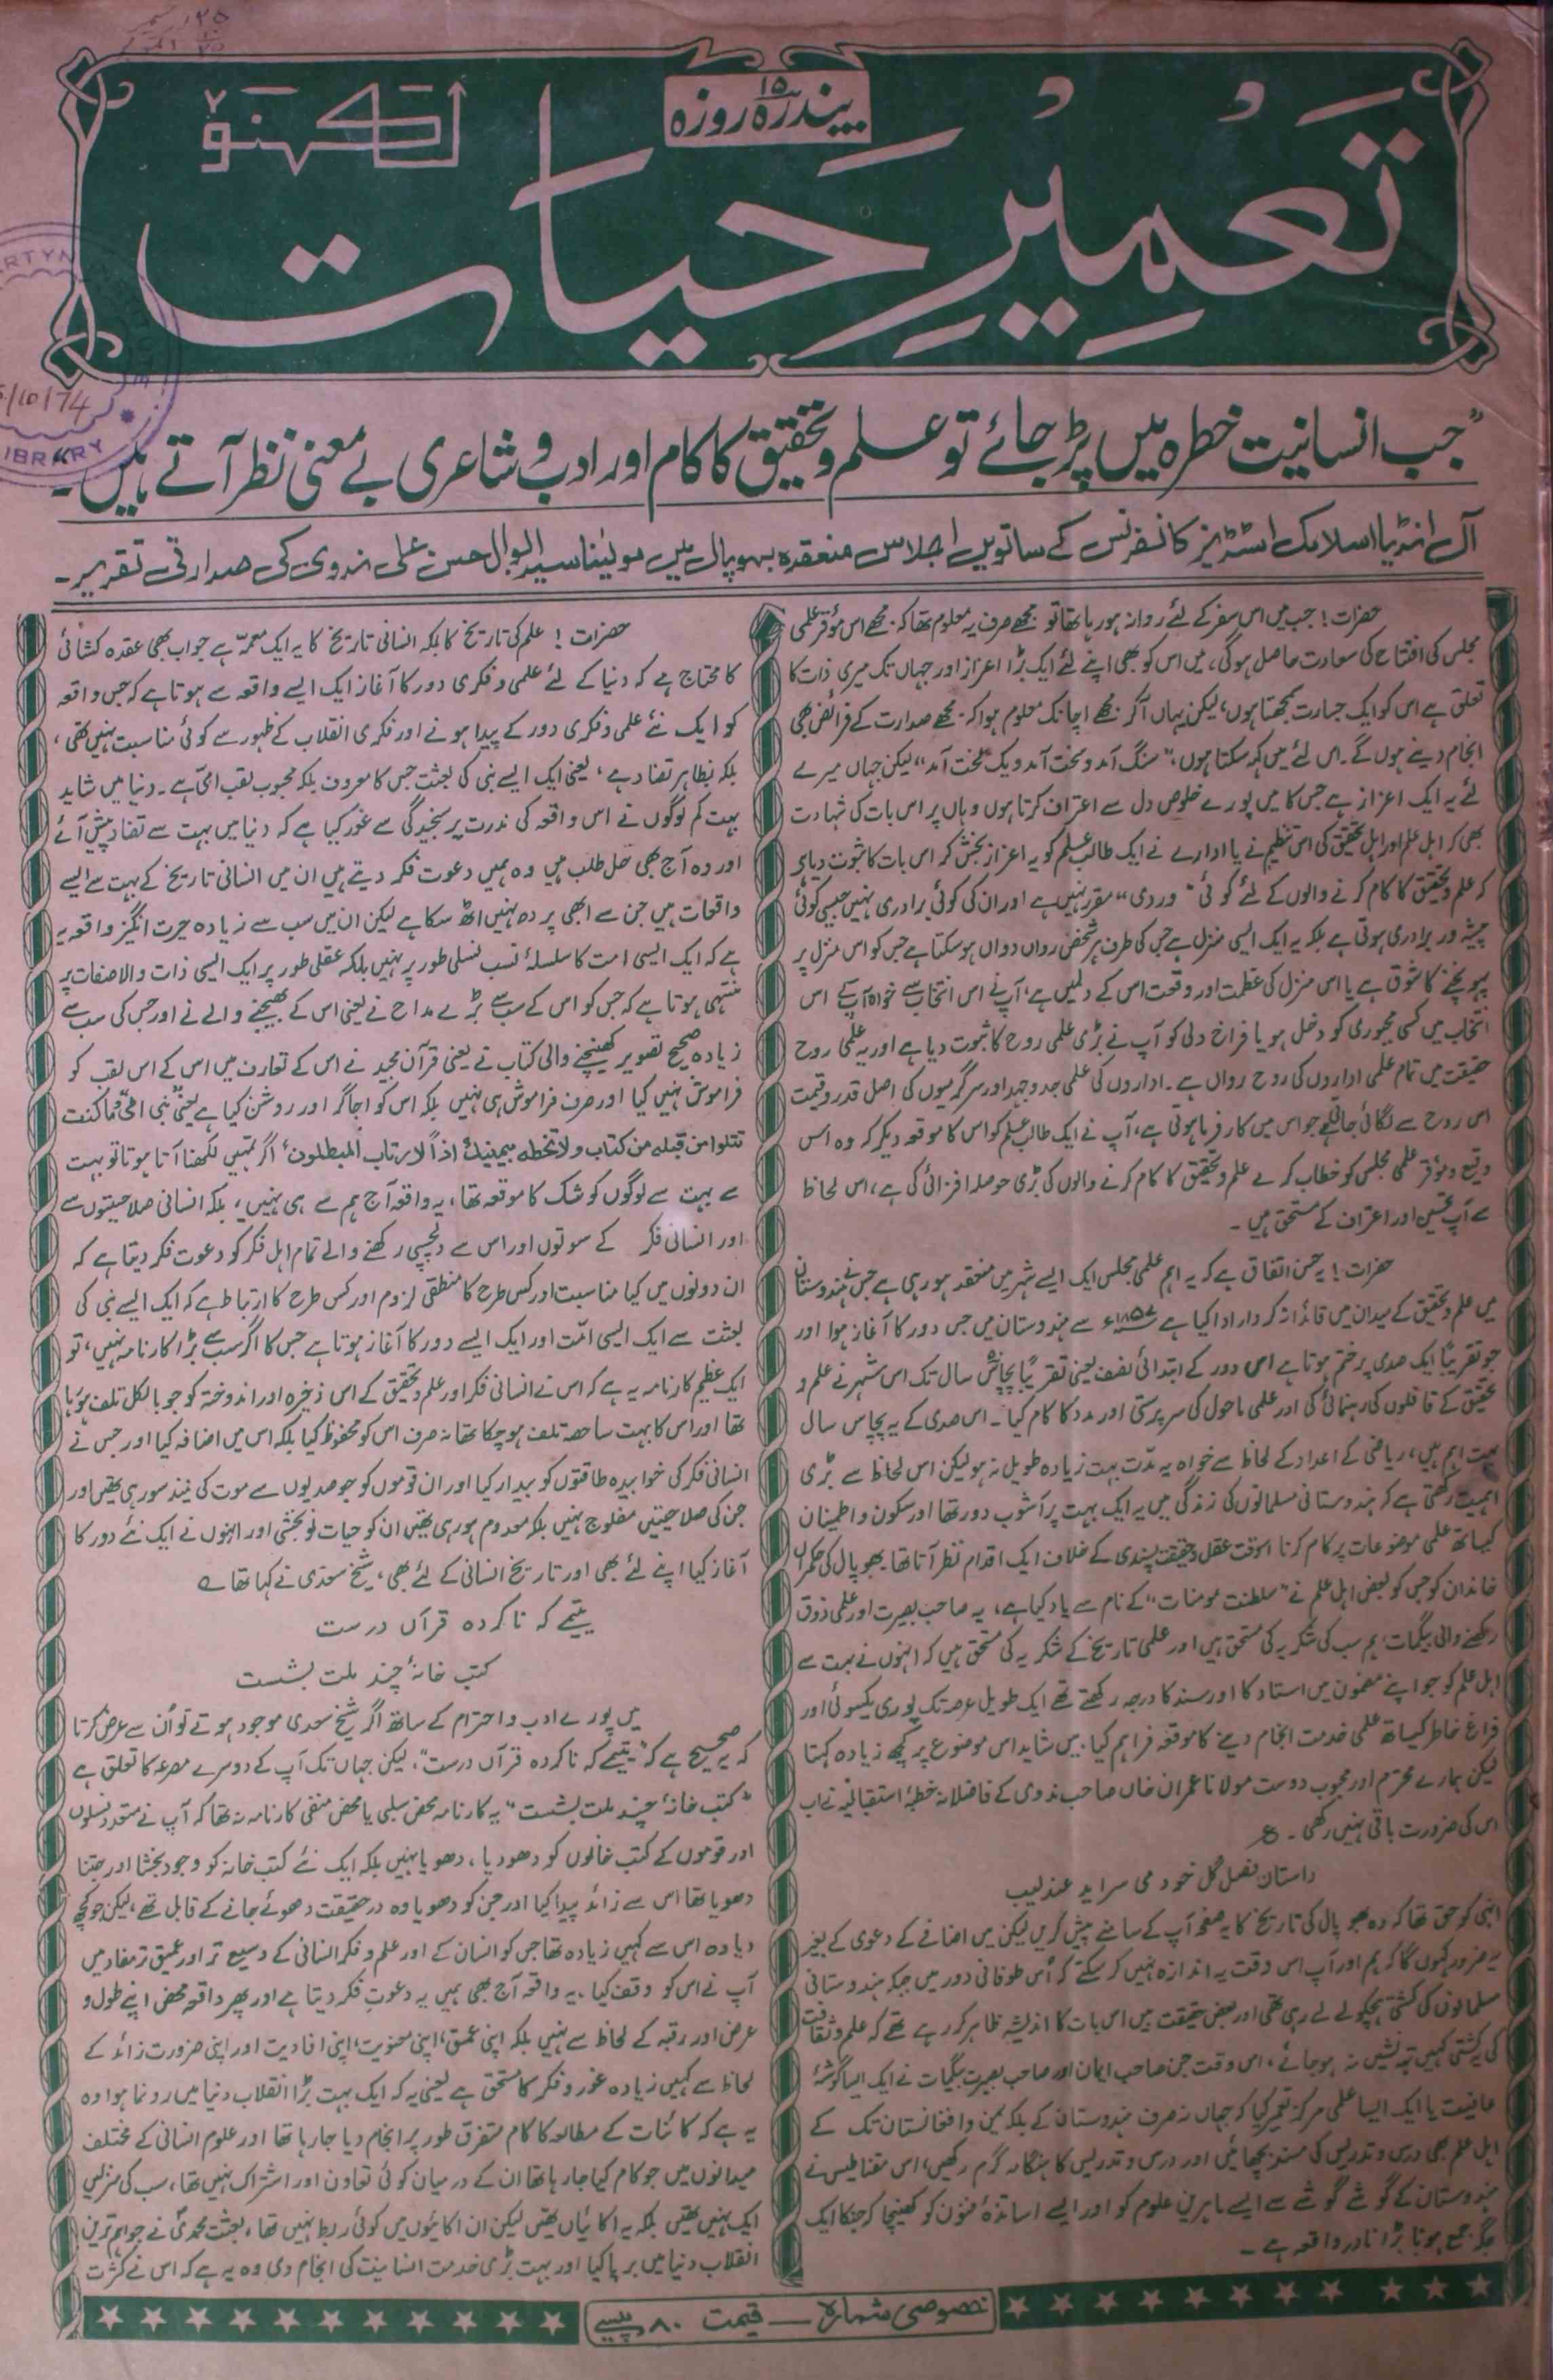 ۲۵ ستمبر
۱۰ اکتوبر
پندرہ ۱۵ روزہ
تعمیرِ حیات
لکھنؤ
LIBRARY
/10/74
”جب انسانیت خطرہ میں پڑ جائے تو علم و تحقیق کا کام اور ادب و شاعری بے معنی نظر آتے ہیں۔
آل انڈیا اسلامک اسٹڈیز کانفرنس کے ساتویں اجلاس منعقدہ بھوپال میں مولینا سید ابوالحسن علی ندوی کی صدارتی تقریر۔
حضرات! جب میں اس سفر کے لئے روانہ ہو رہا تھا تو مجھے صرف یہ معلوم تھا کہ مجھے اس مؤقر علمی
مجلس کی افتتاح کی سعادت حاصل ہوگی، میں اس کو بھی اپنے لئے ایک بڑا اعزاز اور جہاں تک میری ذات کا
تعلق ہے اس کو ایک جسارت سمجھتا ہوں، لیکن یہاں آکر مجھے اچانک معلوم ہوا کہ مجھے صدارت کے فرائض بھی
انجام دینے ہوں گے۔ اس لئے میں کہہ سکتا ہوں، ”سنگ آمد و سخت آمد و یک لخت آمد“ لیکن جہاں میرے
لئے یہ ایک اعزاز ہے جس کا میں پورے خلوص دل سے اعتراف کرتا ہوں وہاں پر اس بات کی شہادت
بھی کہ اہل علم اور اہل تحقیق کی اس تنظیم نے یا ادارے نے ایک طالب علم کو یہ اعزاز بخش کر اس بات کا ثبوت دیا ہے
کہ علم و تحقیق کا کام کرنے والوں کے لئے کوئی ”وردی“ مقرر نہیں ہے اور ان کی کوئی برادری نہیں جیسی کوئی
پیشہ ور برادری ہوتی ہے بلکہ یہ ایک ایسی منزل ہے جس کی طرف ہر شخص رواں دواں ہو سکتا ہے جس کو اس منزل پر
پہونچنے کا شوق ہے یا اس منزل کی عظمت اور وقعت اس کے دل میں ہے، آپ نے اس انتخاب سے خواہ آپ کے اس
انتخاب میں کسی مجبوری کو دخل ہو یا فراخ دلی کو آپ نے بڑی علمی روح کا ثبوت دیا ہے اور یہ علمی روح
حقیقت میں تمام علمی اداروں کی روح رواں ہے۔ اداروں کی علمی جدوجہد اور سرگرمیوں کی اصل قدر و قیمت
اس روح سے لگائی جاتی ہے جو اس میں کارفرما ہوتی ہے، آپ نے ایک طالب علم کو اس کا موقعہ دیکر کہ وہ اس
وقیع و مؤقر علمی مجلس کو خطاب کرے علم و تحقیق کا کام کرنے والوں کی بڑی حوصلہ افزائی کی ہے، اس لحاظ
سے آپ تحسین اور اعتراف کے مستحق ہیں۔
حضرات! یہ حسن اتفاق ہے کہ یہ اہم علمی مجلس ایک ایسے شہر میں منعقد ہو رہی ہے جس نے ہندوستان
میں علم و تحقیق کے میدان میں قائدانہ کردار ادا کیا ہے ۱۸۵۷ء سے ہندوستان میں جس دور کا آغاز ہوا اور
جو تقریباً ایک صدی پر ختم ہوتا ہے اس دور کے ابتدائی نصف یعنی تقریباً پچاس سال تک اس شہر نے علم و
تحقیق کے قافلوں کی رہنمائی کی اور علمی ماحول کی سرپرستی اور مدد کا کام کیا۔ اس صدی کے یہ پچاس سال
بہت اہم ہیں، ریاضی کے اعداد کے لحاظ سے خواہ یہ مدّت بہت زیادہ طویل نہ ہو لیکن اس لحاظ سے بڑی
اہمیت رکھتی ہے کہ ہندوستانی مسلمانوں کی زندگی میں یہ ایک بہت پر آشوب دور تھا اور سکون و اطمینان
کیساتھ علمی موضوعات پر کام کرنا اسوقت عقل و حقیقت پسندی کے خلاف ایک اقدام نظر آتا تھا۔ بھوپال کی حکمراں
خاندان کو جس کو بعض اہل علم نے ”سلطنت مومنات“ کے نام سے یاد کیا ہے، یہ صاحب بصیرت اور علمی ذوق
رکھنے والی بیگمات ہم سب کی شکریہ کی مستحق ہیں اور علمی تاریخ کے شکریہ کی مستحق ہیں کہ انہوں نے بہت سے
اہل علم کو جو اپنے مضمون میں استاد کا اور سند کا درجہ رکھتے تھے ایک طویل عرصہ تک پوری یکسوئی اور
فراغ خاطر کیساتھ علمی خدمت انجام دینے کا موقعہ فراہم کیا۔ میں شاید اس موضوع پر کچھ زیادہ کہتا
لیکن ہمارے محترم اور محبوب دوست مولانا عمران خاں صاحب ندوی کے فاضلانہ خطبۂ استقبالیہ نے اب
اس کی ضرورت باقی نہیں رکھی۔ ع
داستان فصل گل خود می سراید عندلیب
انہی کو حق تھا کہ وہ بھوپال کی تاریخ کا یہ صفحہ آپ کے سامنے پیش کریں لیکن میں اضافے کے دعوی کے بغیر
یہ ضرور کہوں گا کہ ہم اور آپ اس وقت یہ اندازہ نہیں کر سکتے کہ اُس طوفانی دور میں جبکہ ہندوستانی
مسلمانوں کی کشتی ہچکولے لے رہی تھی اور بعض حقیقت بیں اس بات کا اندیشہ ظاہر کر رہے تھے کہ علم و ثقافت
کی یہ کشتی کہیں تہ نشیں نہ ہو جائے، اس وقت جن صاحب ایمان اور صاحب بصیرت بیگمات نے ایک ایسا گوشۂ
عافیت یا ایک ایسا علمی مرکز تعمیر کیا کہ جہاں نہ صرف ہندوستان کے بلکہ یمن و افغانستان تک کے
اہل علم بھی درس و تدریس کی مسند بچھائیں اور درس و تدریس کا ہنگامہ گرم رکھیں، اس مقناطیس نے
ہندوستان کے گوشے گوشے سے ایسے ماہرین علوم کو اور ایسے اساتذۂ فنون کو کھینچا کہ جنکا ایک
جگہ جمع ہونا بڑا نادر واقعہ ہے۔
حضرات! علم کی تاریخ کا بلکہ انسانی تاریخ کا یہ ایک معمہّ ہے جو اب بھی عقدہ کشائی
کا محتاج ہے کہ دنیا کے لئے علمی و فکری دور کا آغاز ایک ایسے واقعہ سے ہوتا ہے کہ جس واقعہ
کو ایک نئے علمی و فکری دور کے پیدا ہونے اور فکری انقلاب کے ظہور سے کوئی مناسبت نہیں تھی،
بلکہ بظاہر تضاد ہے، یعنی ایک ایسے نبی کی بعثت جس کا معروف بلکہ محبوب لقب امّی ہے۔ دنیا میں شاید
بہت کم لوگوں نے اس واقعہ کی ندرت پر سنجیدگی سے غور کیا ہے کہ دنیا میں بہت سے تضاد پیش آئے
اور وہ آج بھی حل طلب ہیں وہ ہمیں دعوت فکر دیتے ہیں ان میں انسانی تاریخ کے بہت سے ایسے
واقعات ہیں جن سے ابھی پردہ نہیں اٹھ سکا ہے لیکن ان میں سب سے زیادہ حیرت انگیز واقعہ یہ
ہے کہ ایک ایسی امت کا سلسلۂ نسب نسلی طور پر نہیں بلکہ عقلی طور پر ایک ایسی ذات والا صفات پر
منتہی ہوتا ہے کہ جس کو اس کے سب سے بڑے مداح نے یعنی اس کے بھیجنے والے نے اور جس کی سب سے
زیادہ صحیح تصویر کھینچنے والی کتاب نے یعنی قرآن مجید نے اس کے تعارف میں اس کے اس لقب کو
فراموش نہیں کیا اور صرف فراموش ہی نہیں بلکہ اس کو اجاگر اور روشن کیا ہے یعنی نبی امّی وما کنت
تتلوا من قبله من کتاب ولا تخطه بیمینک اذاً لارتاب المبطلون، اگر تمہیں لکھنا آتا ہوتا تو بہت
سے بہت سے لوگوں کو شک کا موقعہ تھا، یہ واقعہ آج ہم سے ہی نہیں، بلکہ انسانی صلاحیتوں سے
اور انسانی فکر کے سوتوں اور اس سے دلچسپی رکھنے والے تمام اہل فکر کو دعوت فکر دیتا ہے کہ
ان دونوں میں کیا مناسبت اور کس طرح کا منطقی لزوم اور کس طرح کا ارتباط ہے کہ ایک ایسے نبی کی
بعثت سے ایک ایسی امّت اور ایک ایسے دور کا آغاز ہوتا ہے جس کا اگر سب سے بڑا کارنامہ نہیں، تو
ایک عظیم کارنامہ یہ ہے کہ اس نے انسانی فکر اور علم و تحقیق کے اس ذخیرہ اور اندوختہ کو جو بالکل تلف ہو رہا
تھا اور اس کا بہت سا حصہ تلف ہو چکا تھا نہ صرف اس کو محفوظ کیا بلکہ اس میں اضافہ کیا اور جس نے
انسانی فکر کی خوابیدہ طاقتوں کو بیدار کیا اور ان قوموں کو جو صدیوں سے موت کی نیند سو رہی تھیں اور
جن کی صلاحیتیں مفلوج نہیں بلکہ معدوم ہو رہی تھیں ان کو حیات نو بخشی اور انہوں نے ایک نئے دور کا
آغاز کیا اپنے لئے بھی اور تاریخ انسانی کے لئے بھی، شیخ سعدی نے کہا تھا ے
یتیمے کہ ناکردہ قرآں درست
کتب خانۂ چند ملت بشست
میں پورے ادب و احترام کے ساتھ اگر شیخ سعدی موجود ہوتے تو اُن سے عرض کرتا
کہ یہ صحیح ہے کہ ”یتیمے کہ ناکردہ قرآں درست“، لیکن جہاں تک آپ کے دوسرے مصرعہ کا تعلق ہے
”کتب خانۂ چند ملت بشست“ یہ کارنامہ محض سلبی یا محض منفی کارنامہ نہ تھا کہ آپ نے متعدد نسلوں
اور قوموں کے کتب خانوں کو دھو دیا، دھویا نہیں بلکہ ایک نئے کتب خانہ کو وجود بخشا اور جتنا
دھویا تھا اس سے زائد پیدا کیا اور جن کو دھویا وہ درحقیقت دھوئے جانے کے قابل تھے، لیکن جو کچھ
دیا وہ اس سے کہیں زیادہ تھا جس کو انسان کے اور علم و فکر انسانی کے وسیع تر اور عمیق تر مفاد میں
آپ نے اس کو وقف کیا۔ یہ واقعہ آج بھی ہمیں یہ دعوتِ فکر دیتا ہے اور پھر واقعہ محض اپنے طول و
عرض اور رقبہ کے لحاظ سے نہیں بلکہ اپنی عمق، اپنی معنویت، اپنی افادیت اور اپنی ضرورت زائد کے
لحاظ سے کہیں زیادہ غور و فکر کا مستحق ہے یعنی یہ کہ ایک بہت بڑا انقلاب دنیا میں رونما ہوا وہ
یہ ہے کہ کائنات کے مطالعہ کا کام متفرق طور پر انجام دیا جا رہا تھا اور علوم انسانی کے مختلف
میدانوں میں جو کام کیا جا رہا تھا ان کے درمیان کوئی تعاون اور اشتراک نہیں تھا، سب کی منزلیں
ایک نہیں تھیں بلکہ یہ اکائیاں تھیں لیکن ان اکائیوں میں کوئی ربط نہیں تھا، بعثت محمدیؐ نے جو اہم ترین
انقلاب دنیا میں برپا کیا اور بہت بڑی خدمت انسانیت کی انجام دی وہ یہ ہے کہ اس نے کثرت
خصوصی شمارہ — قیمت ۸۰ پیسے